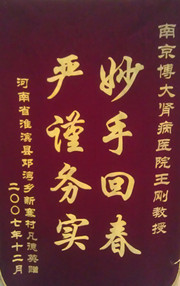 南京博大肾病医院王刚教授
妙手回春
严谨务实
河南省淮滨县邓湾乡新寨村凡德英赠
二〇〇七年十二月